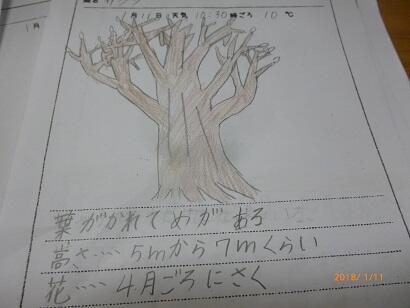 題名 サクラ
1月
1月11日 天気 10:30時ごろ 10℃
葉がかれてめがある
嵩さ‥‥5mから7mくらい
花‥‥4月ごろにさく
2018/1/11